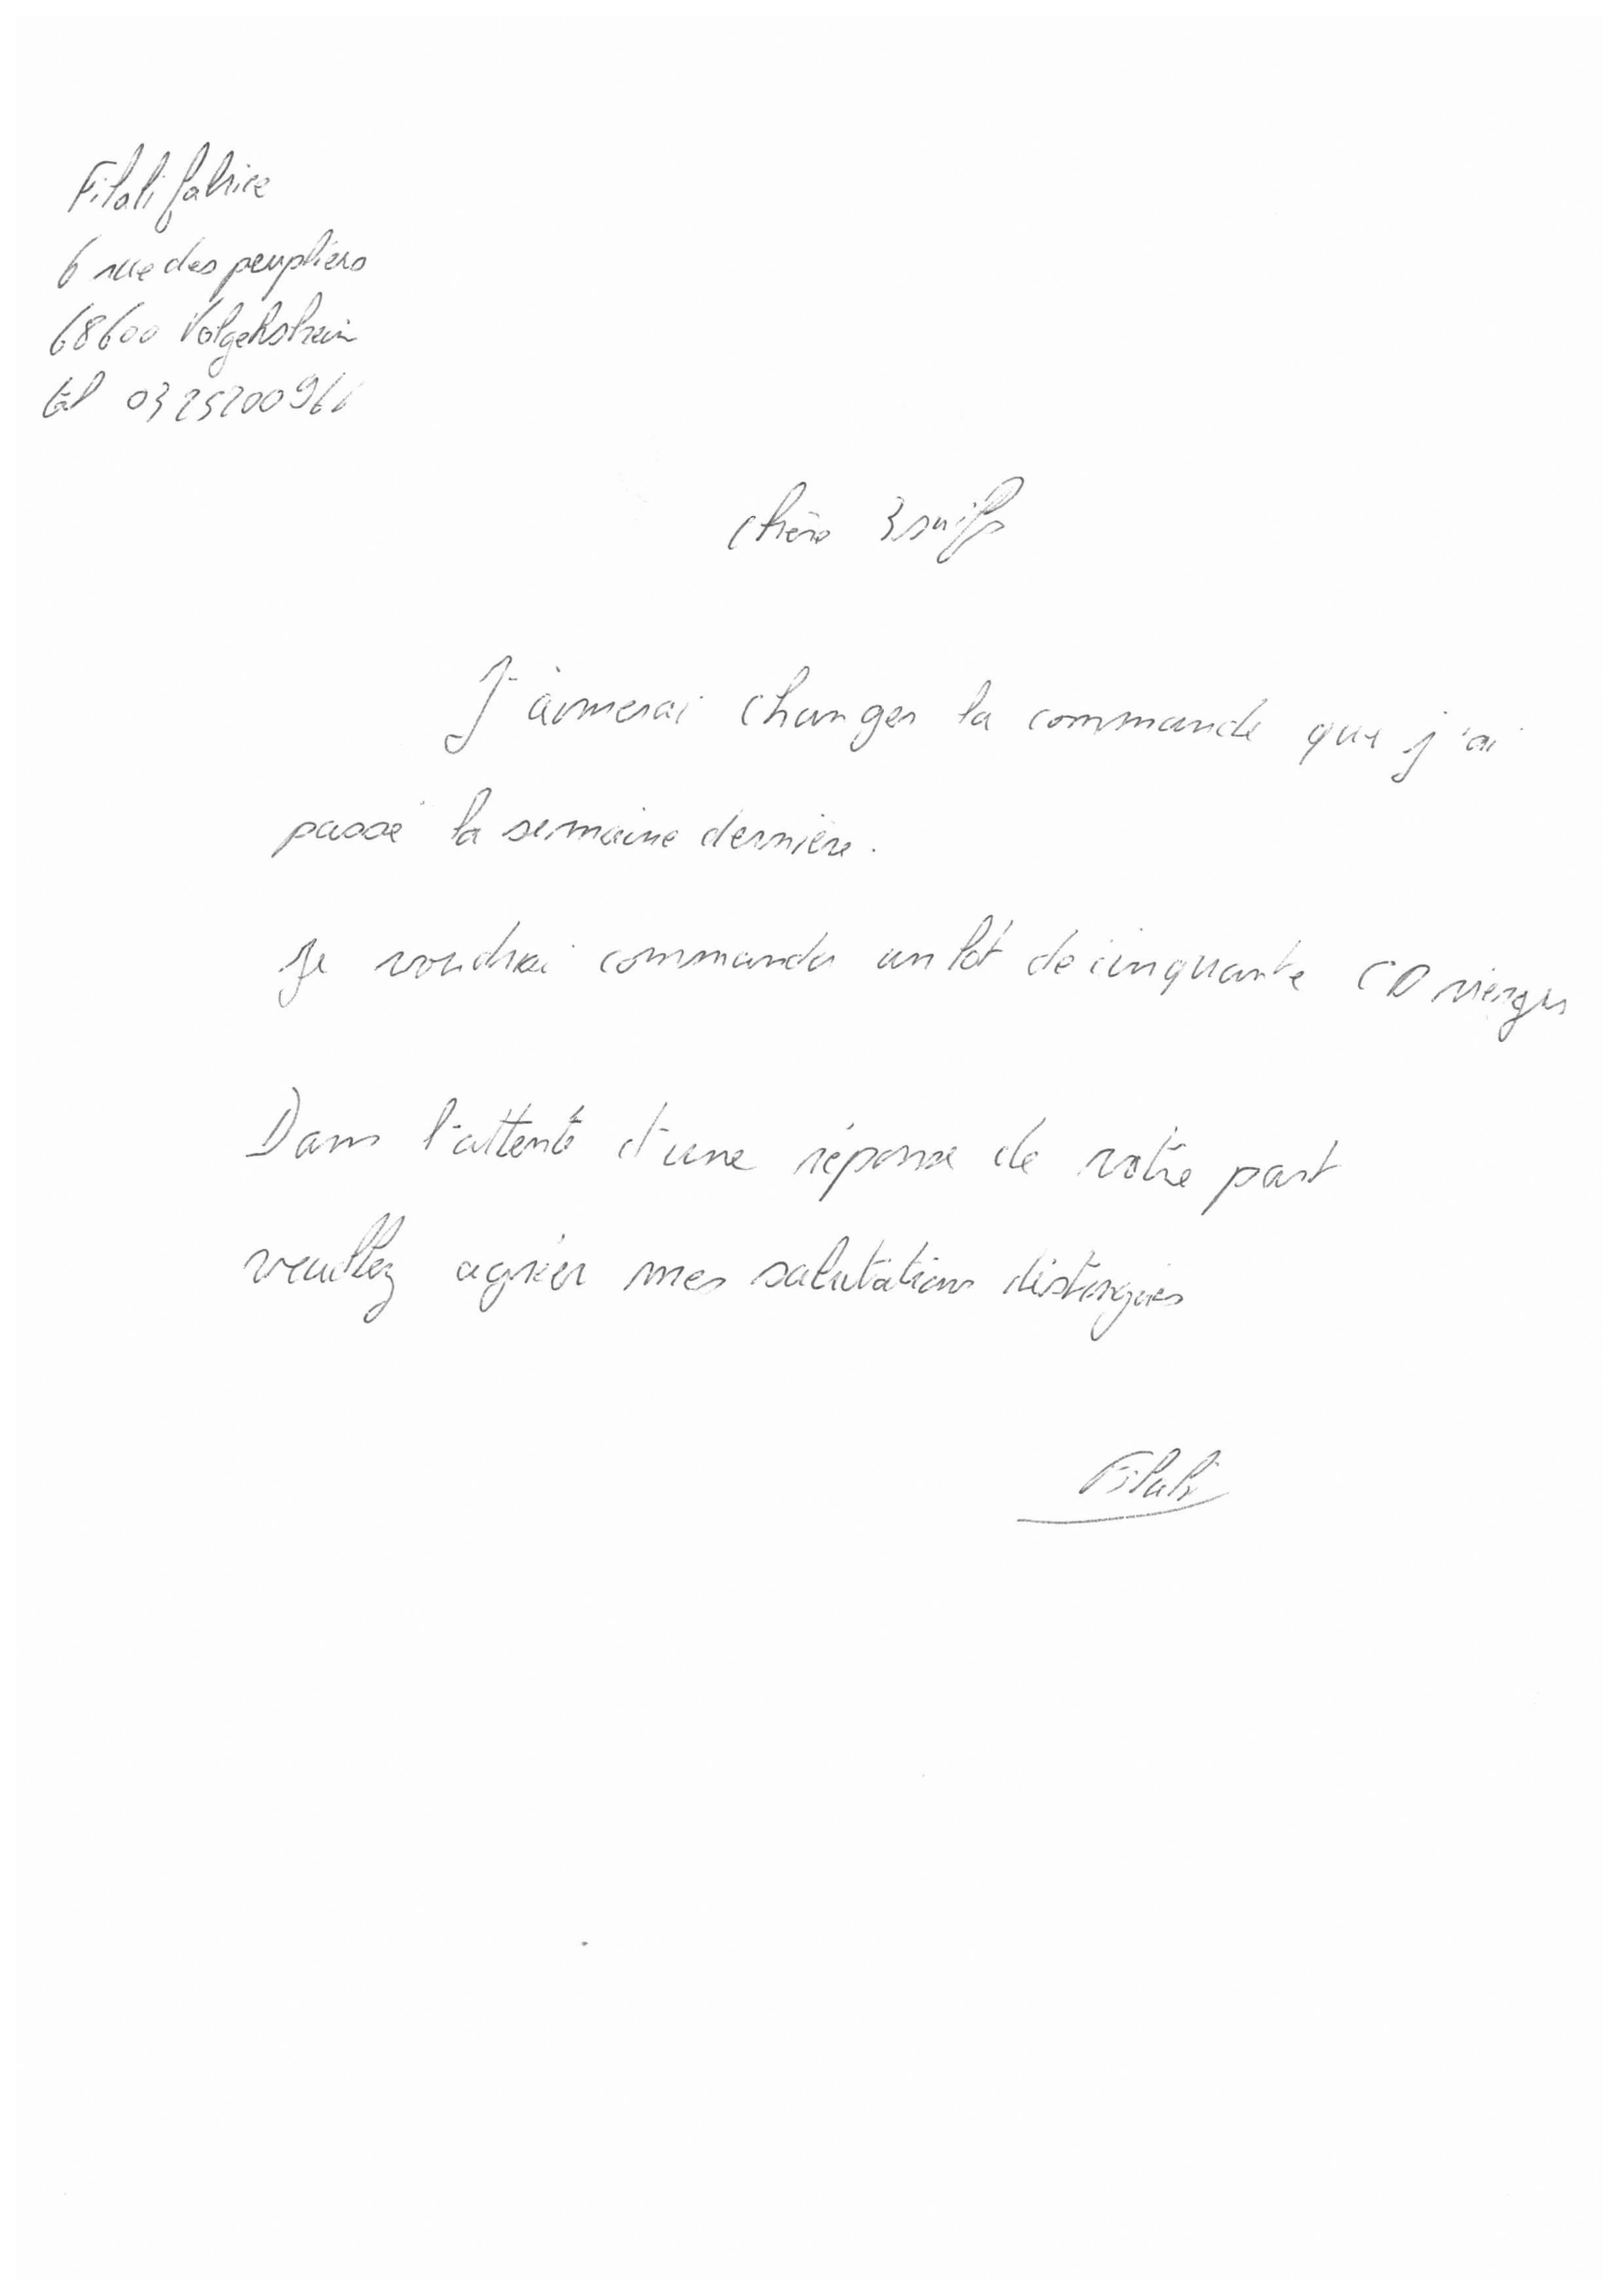 Filali fabrice
6 rue des peupliers
68600 Volgelsheim
tel 0325200961
chers 3 suifs
J'aimerai changer la commande que j'ai
passé la semaine dernière.
Je voudrai commander un lot de cinquante CD vierges
Dans l'attente d'une réponse de votre part
veuillez agréer mes salutations distingués
Filali